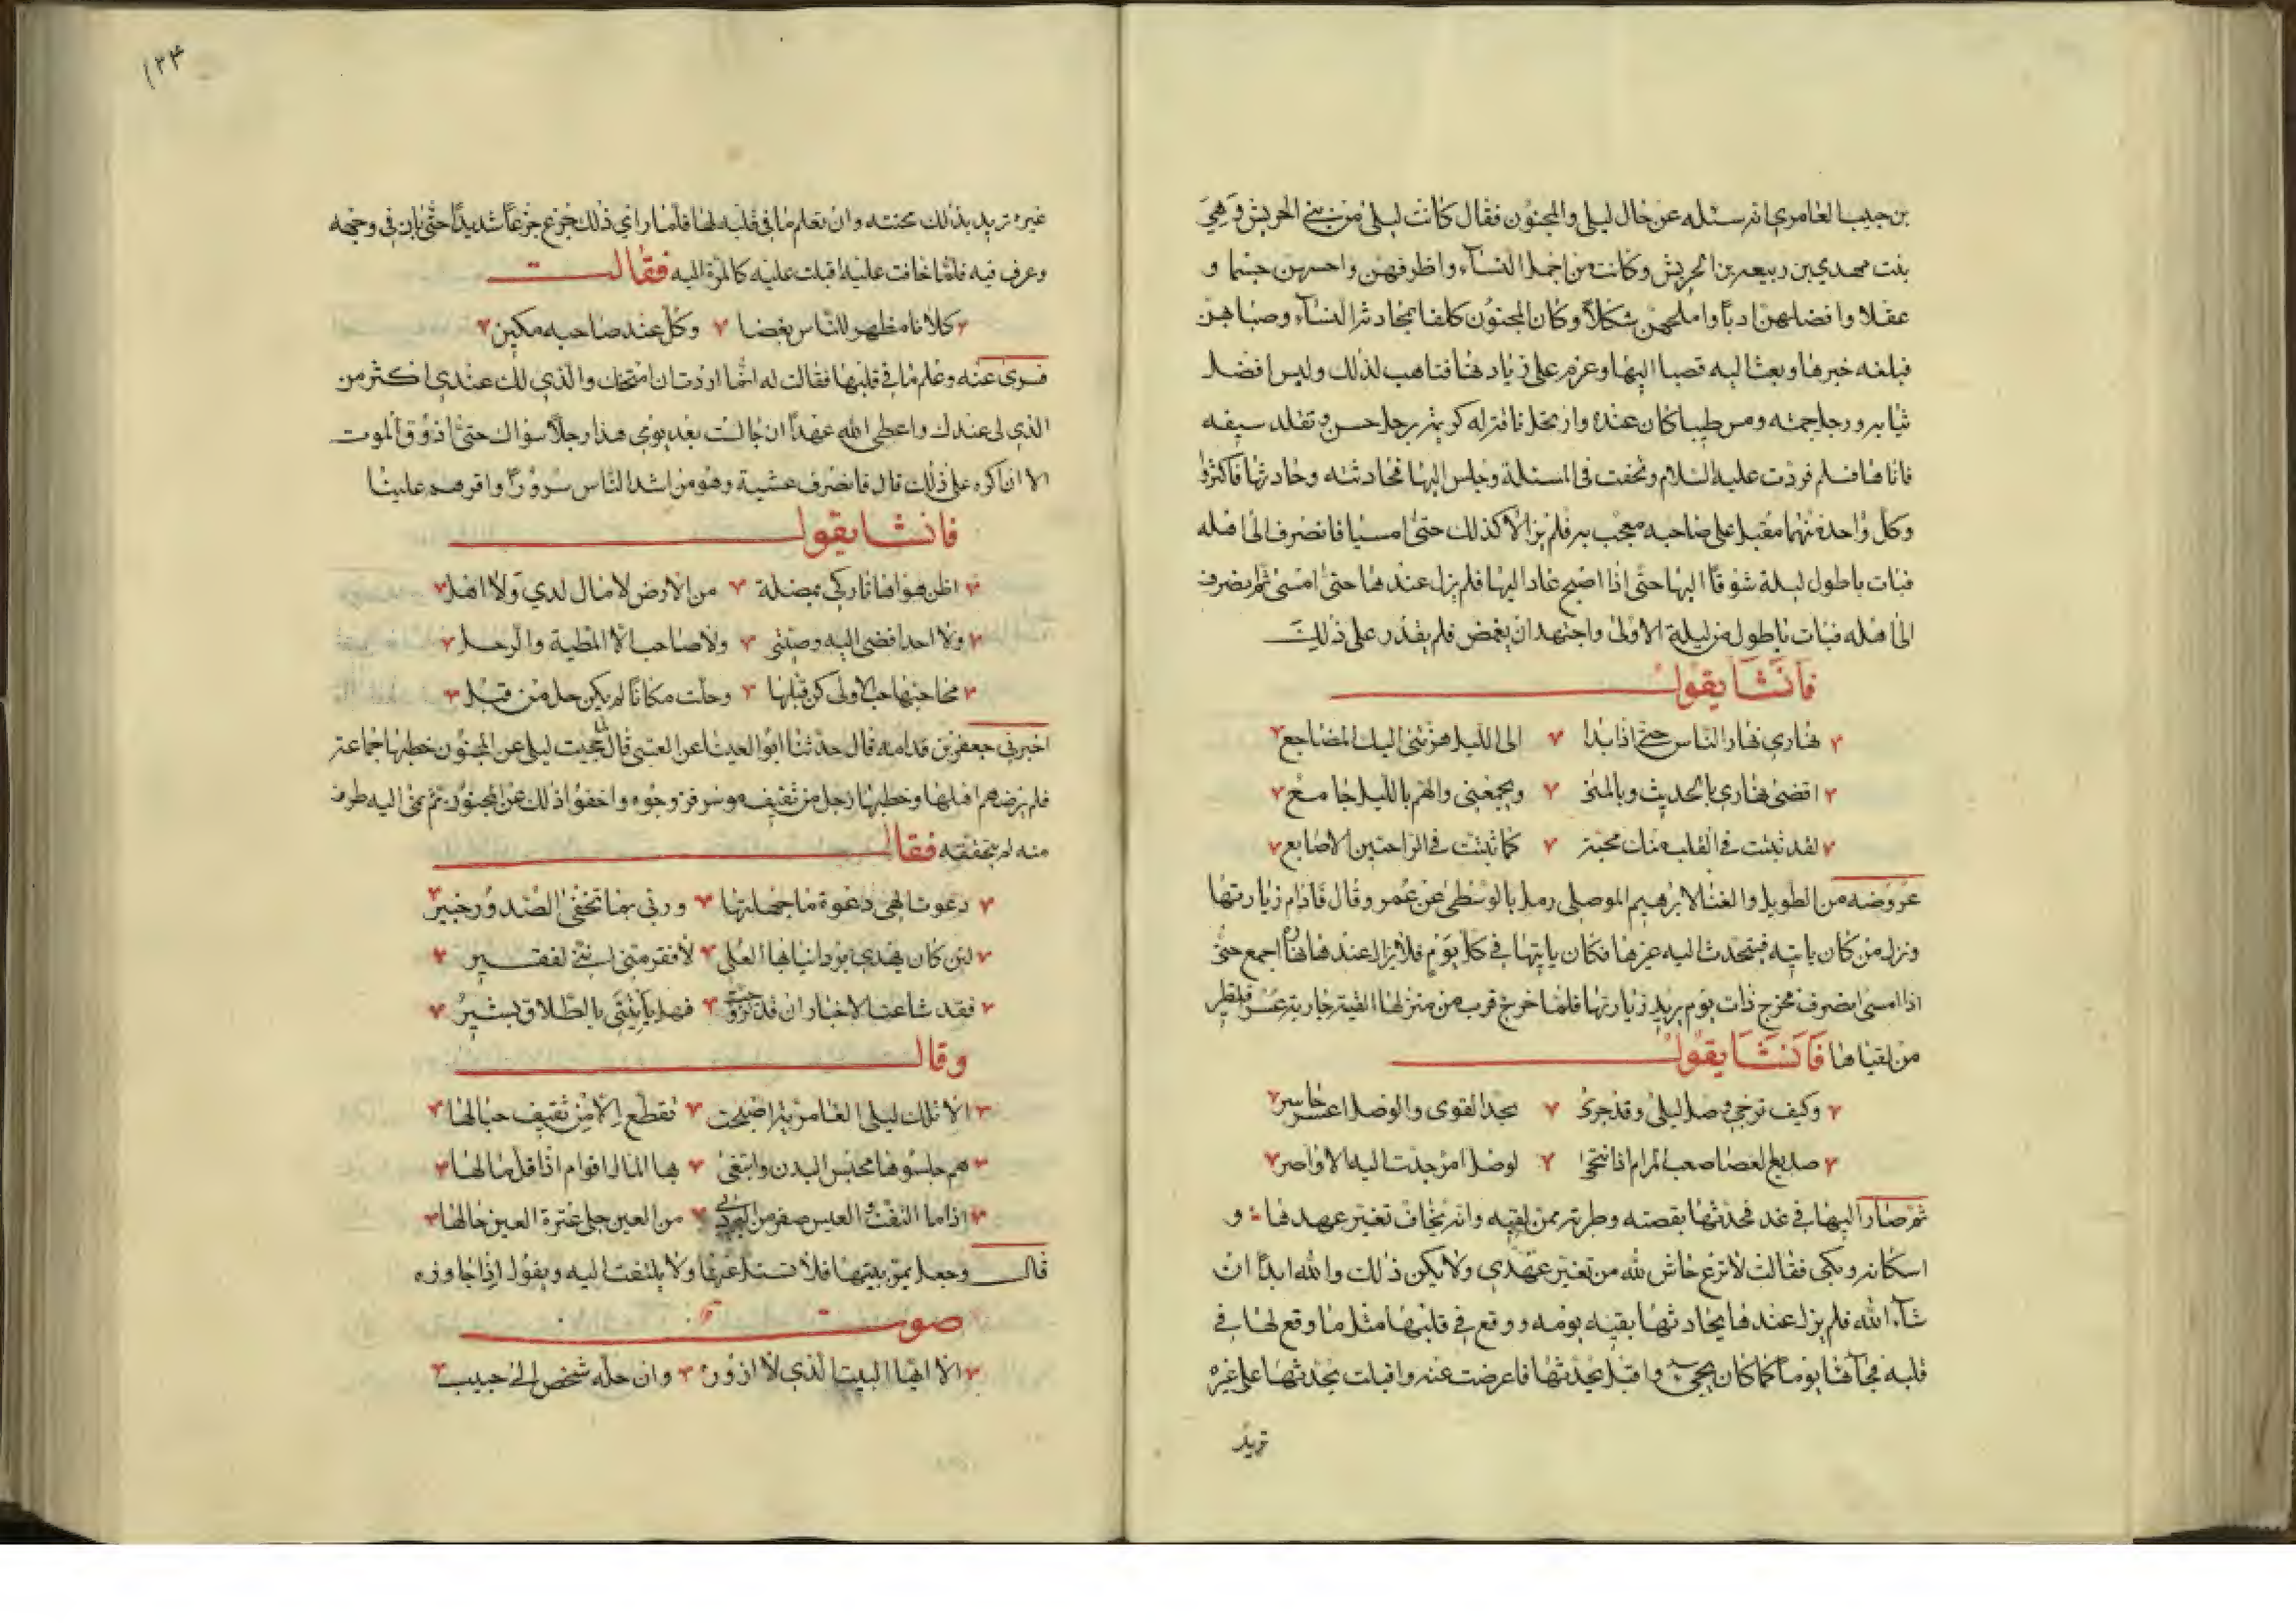 بن حبيب العامري انه سئله عن حال ليلى والمجنون فقال كانت ليلى من بني الحريش وهي
بنت مهدي بن ربيعه بن الحريش وكانت من اجمل النسآء واظرفهن واحسنهن جسما و
عقلا وافضلهن ادبا واملحهن شكلاً وكان المجنون كلفا بمحادثة النسآء وصبا بهن
فبلغه خبرها ونعتت اليه فصبا اليها وعزم على زيارتها فتاهب لذلك ولبس افضل
ثيابه ورجل جمته ومس طيبا كان عنده وارتحل ناقة له كريمة برحل حسن وتقلد سيفه
فاتاها فسلم فردت عليه السلام وتحفت في المسئلة وجلس اليها فحادثته وحادثها فاكثرا
وكل واحد منهما مقبل على صاحبه معجب به فلم يزالا كذلك حتى امسيا فانصرف الى اهله
فبات باطول ليلة شوقاً اليها حتى اذا اصبح عاد اليها فلم يزل عندها حتى امسى ثم انصرف
الى اهله فبات باطول من ليلة الاولى واجتهد ان يغمض فلم يقدر على ذلك
فانشا يقول
نهاري نهار الناس حتى اذا بدا الى الليل هزتني اليك المضاجع
اقضى نهاري بالحديث وبالمنى ويجمعني والهم بالليل جامع
لقد ثبتت في القلب منك محبة كما ثبتت في الراحتين الاصابع
عروضه من الطويل والغنا لابرهيم الموصلى رمل بالوسطى عن عمرو قال فادام زيارتها
وترك من كان ياتيه فيتحدث اليه غيرها فكان ياتيها في كل يوم فلا يزال عندها نهاره اجمع حتى
اذا امسى انصرف فخرج ذات يوم يريد زيارتها فلما خرج قرب من منزلها القيته جارية عسر فتطير
من لقياها فانشا يقول
وكيف ترجى وصل ليلى وقد جرى بجد القوى والوصل اعسر حاسر
صديع العصا صعب المرام اذا انتحى لوصل امرء جذت اليه الاواصر
ثم صار اليها في غد فحدثها بقصته وطيرته ممن لقيه وانه يخاف تغير عهدها و
اسكانه وبكى فقالت لا ترع حاش لله من تغير عهدي ولا يكن ذلك والله ابدا ان
شآء الله فلم يزل عندها يحادثها بقيه يومه ووقع في قلبها مثل ما وقع لها في
قلبه فجآءها يوما كما كان يجئ واقبل يحدثها فاعرضت عنه واقبلت يحدثها على غيره
تريد
١٣٤
غيره تريد بذلك محنته وان تعلم ما في قلبه لها فلما راي ذلك جزع جزعاً شديداً حتى بان في وجهه
وعرف فيه فلما خافت عليه اقبلت عليه كالمسرة اليه فقالت
كلانا مظهر للناس بغضا وكل عند صاحبه مكين
فسرى عنه وعلم ما في قلبها فقالت له انما اردت ان امتحنك والذي لك عندي اكثر من
الذي لي عندك واعطى الله عهداً ان جالست بعد يومي هذا رجلاً سواك حتى اذوق الموت
الا ان اكره على ذلك قال فانصرف عشية وهو من اشد الناس سروراً واقرهم علينا
فانشا يقول
اظن هواها تاركي بمضلة من الارض لا مال لدي ولا اهل
ولا احد افضى اليه وصيتي ولا صاحب الا المطية والرحل
محا حبها حب الاولى كن قبلها وحلت مكاناً لم يكن حل من قبل
اخبرني جعفر بن قدامه قال حدثنا ابو العينا عن العتبي قال لما حجبت ليلى عن المجنون خطبها جماعة
فلم يرضهم اهلها وخطبها رجل من ثقيف موسر فزوجوه واخفوا ذلك عن المجنون ثم نمى اليه طرف
منه لم يتحققه فقال
دعوت الهي دعوة ما جهلتها وربي بما تخفى الصدور خبير
لئن كان يهدي برد انيابها العلى لأفقر مني انني لفقير
فقد شاعت الاخبار ان قد تزوجت فهل ياتيني بالطلاق بشير
وقال
الا تلك ليلى العامرية اصبحت تقطع الا من ثقيف حبالها
هم حبسوها محبس البدن وابتغى بها المال اقوام اذا قل مالها
اذا ما التفت والعيس صعر من البرى من العين جلى عبرة العين حالها
قال وجعل يمر ببيتها فلا تسئل عنها ولا يلتفت اليه ويقول اذا جاوزه
صوت
الا ايها البيت الذي لا ازوره وان حله شخص الي حبيب